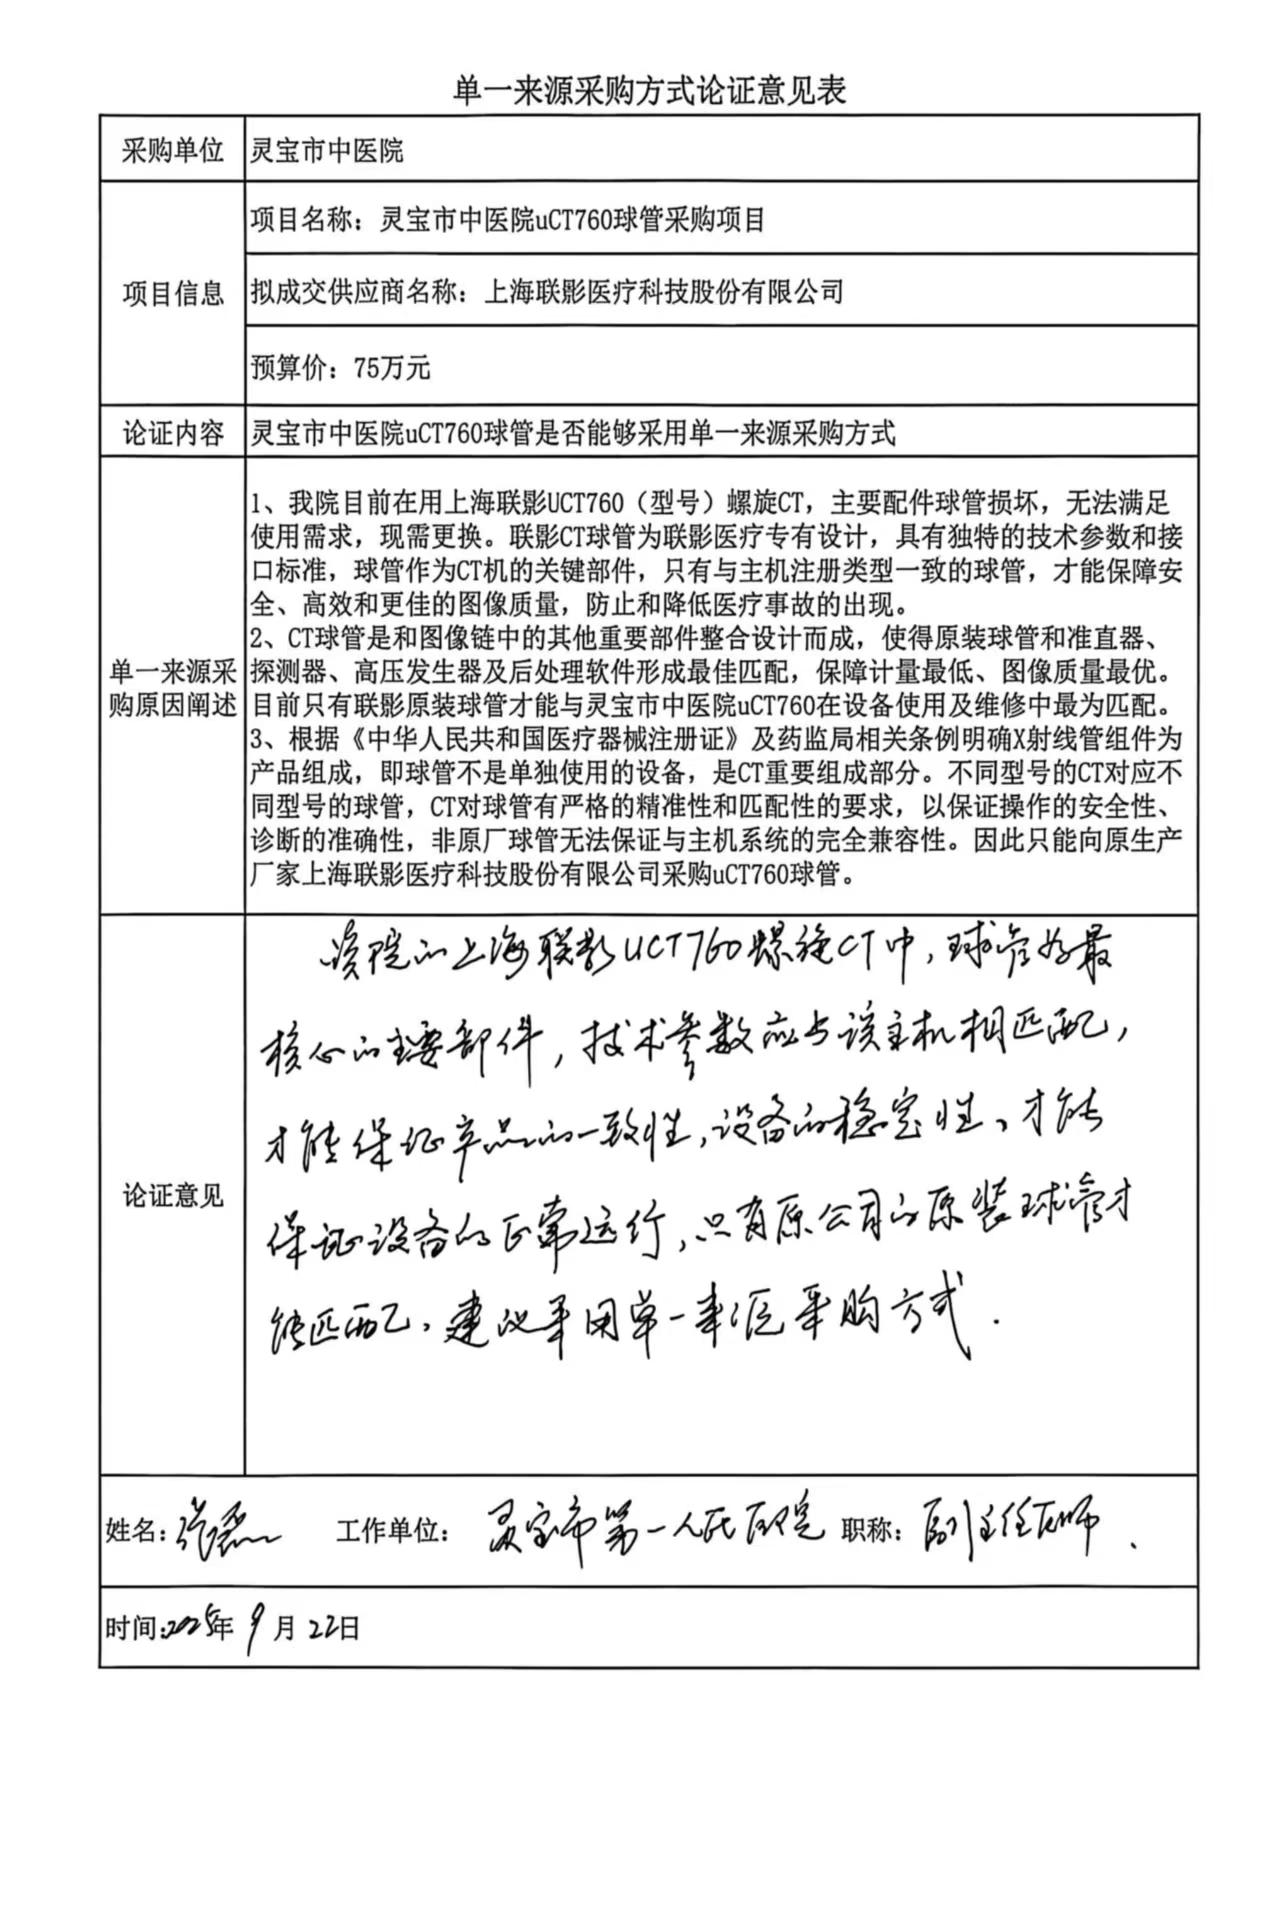 单一来源采购方式论证意见表
采购单位
灵宝市中医院
项目信息
项目名称：灵宝市中医院uCT760球管采购项目
拟成交供应商名称：上海联影医疗科技股份有限公司
预算价：75万元
论证内容
灵宝市中医院uCT760球管是否能够采用单一来源采购方式
单一来源采
购原因阐述
1、我院目前在用上海联影UCT760（型号）螺旋CT，主要配件球管损坏，无法满足
使用需求，现需更换。联影CT球管为联影医疗专有设计，具有独特的技术参数和接
口标准，球管作为CT机的关键部件，只有与主机注册类型一致的球管，才能保障安
全、高效和更佳的图像质量，防止和降低医疗事故的出现。
2、CT球管是和图像链中的其他重要部件整合设计而成，使得原装球管和准直器、
探测器、高压发生器及后处理软件形成最佳匹配，保障计量最低、图像质量最优。
目前只有联影原装球管才能与灵宝市中医院uCT760在设备使用及维修中最为匹配。
3、根据《中华人民共和国医疗器械注册证》及药监局相关条例明确X射线管组件为
产品组成，即球管不是单独使用的设备，是CT重要组成部分。不同型号的CT对应不
同型号的球管，CT对球管有严格的精准性和匹配性的要求，以保证操作的安全性、
诊断的准确性，非原厂球管无法保证与主机系统的完全兼容性。因此只能向原生产
厂家上海联影医疗科技股份有限公司采购uCT760球管。
论证意见
该院的上海联影UCT760螺旋CT中，球管为最
核心的主要部件，技术参数应与该主机相匹配，
才能保证产品的一致性，设备的稳定性、才能
保证设备的正常运行，只有原公司的原装球管才
能匹配，建议采用单一来源采购方式.
姓名：张磊 工作单位： 灵宝市第一人民医院 职称：副主任医师.
时间：2025年9月22日